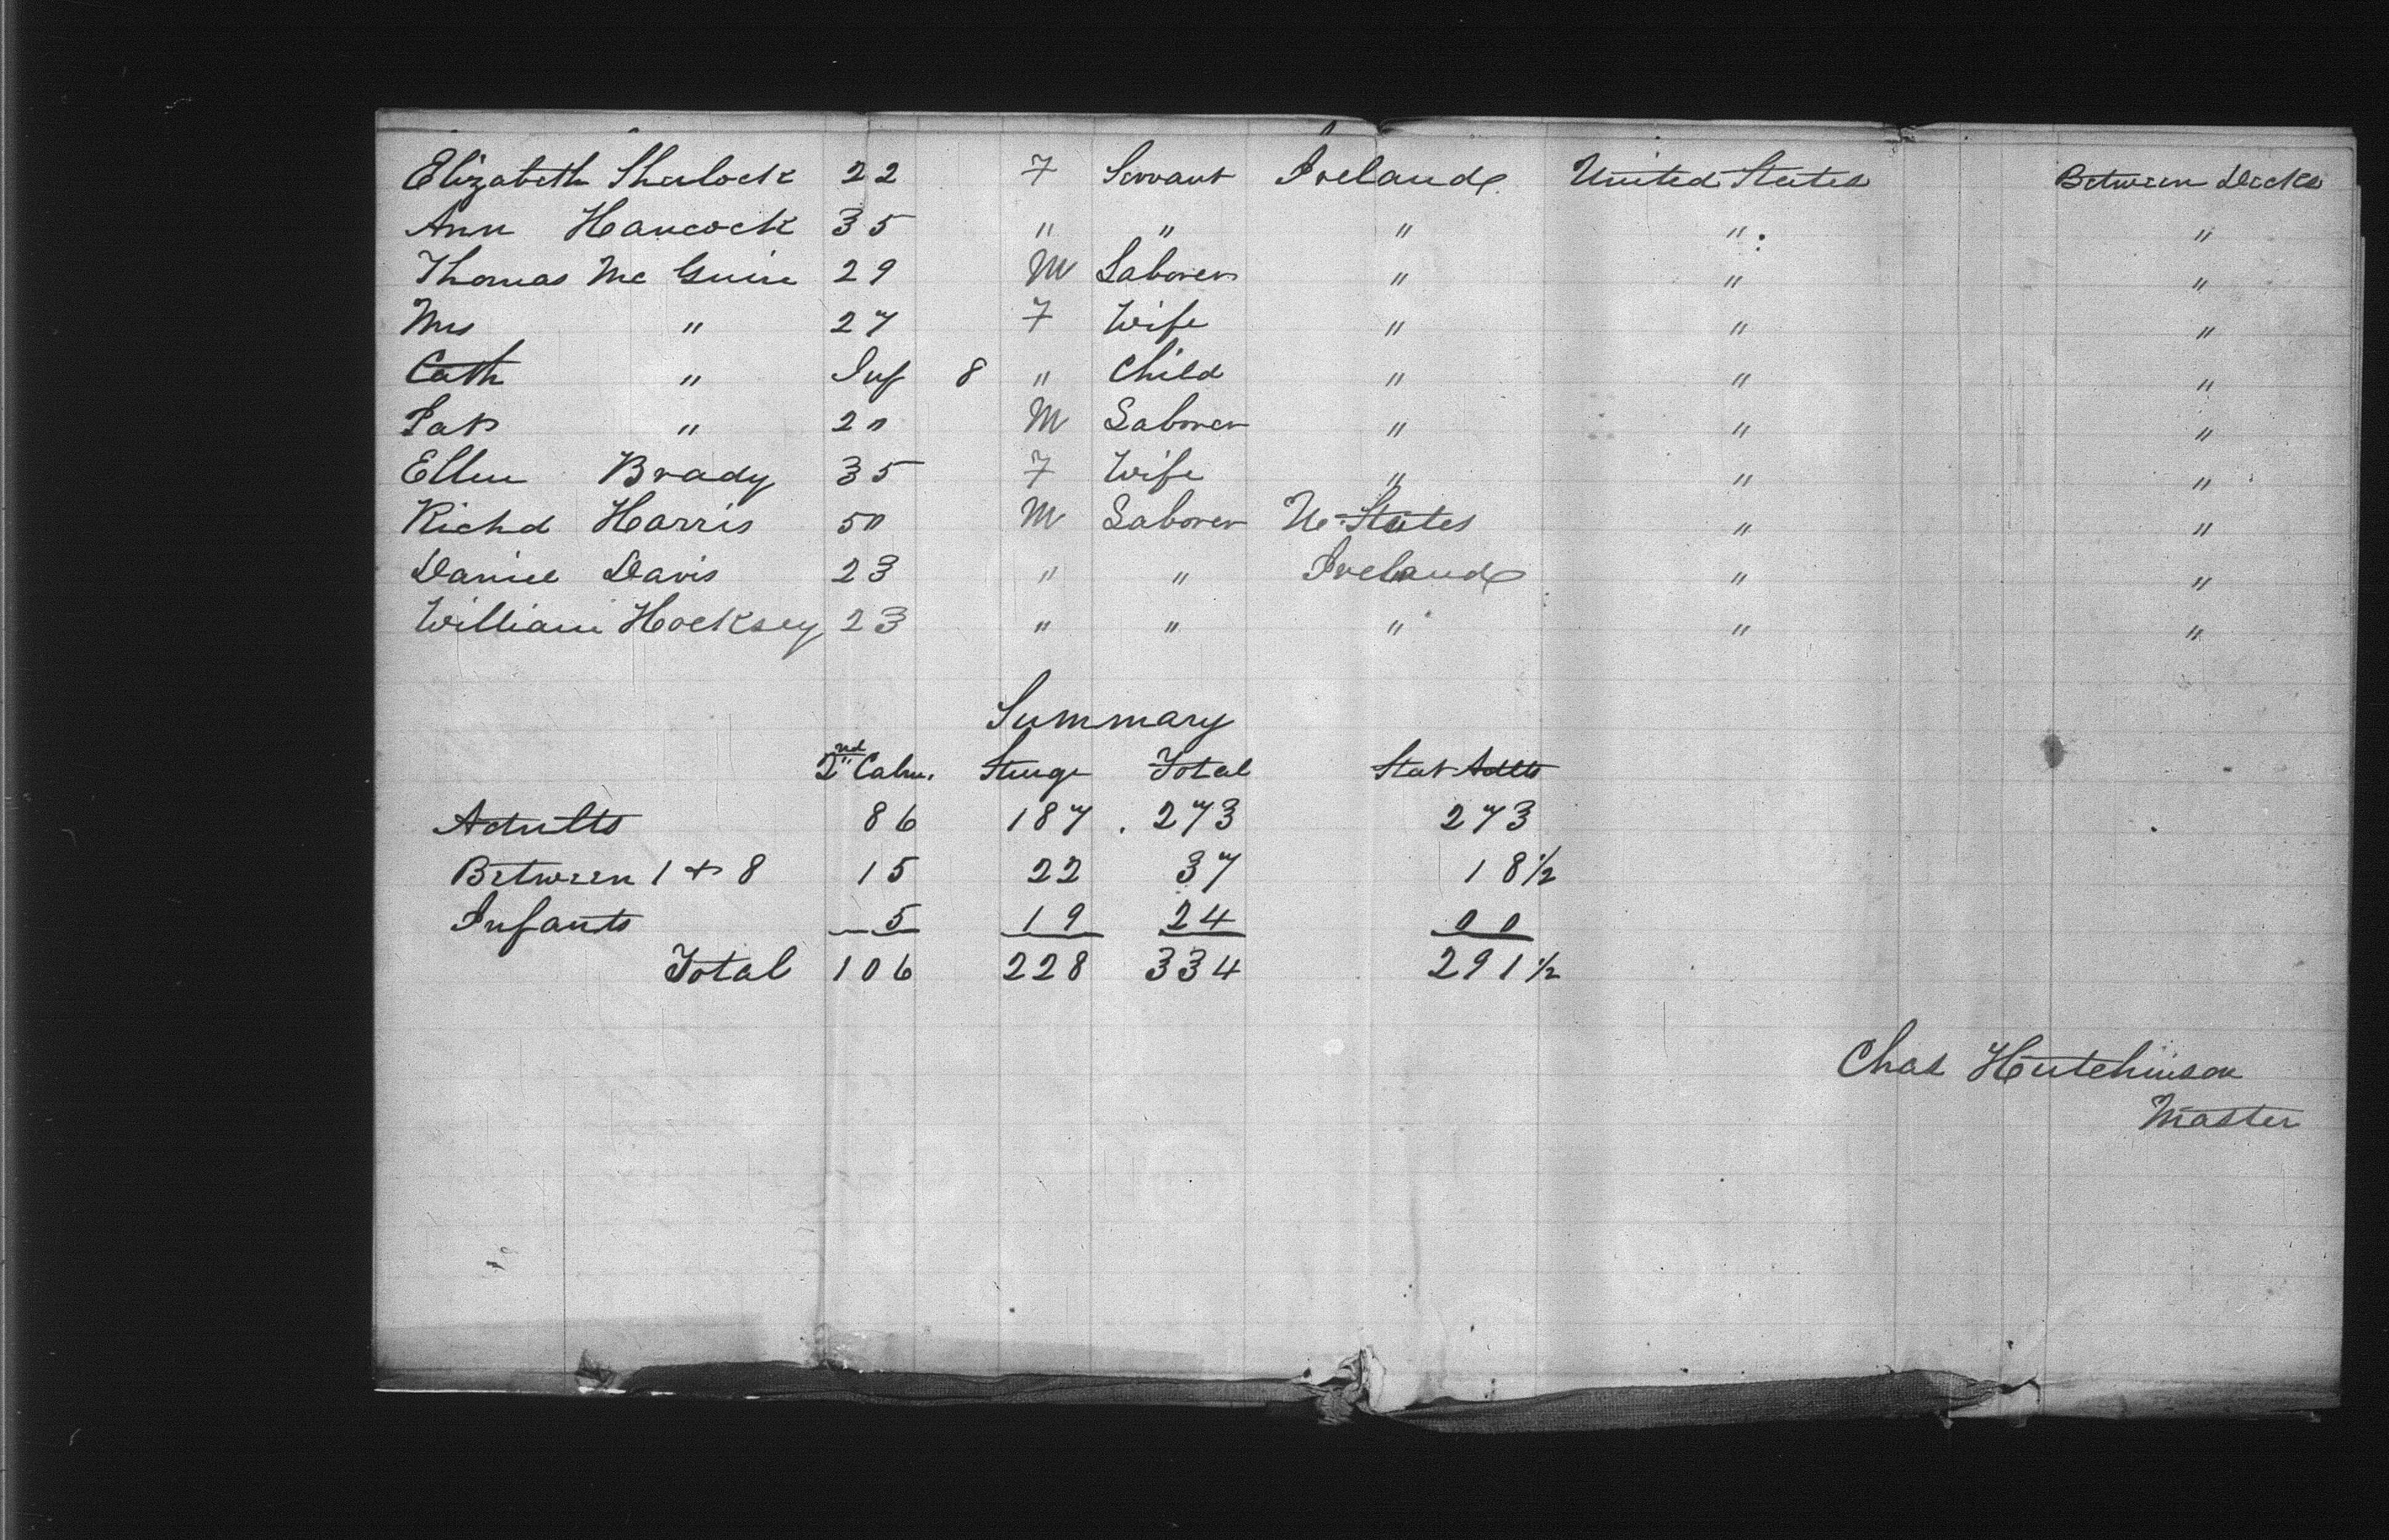 Elizabeth Sherlock 22 F Servant Ireland United States Between Decks
Ann Hancock 35 " " " " "
Thomas McGuire 29 M Laborer " " "
Mrs " 27 F Wife " " "
Cath " Inf 8 " Child " " "
Pat " 20 M Laborer " " "
Ellen Brady 35 F Wife " " "
Richd Harris 50 M Laborer U. States " "
Daniel Davis 23 " " Ireland " "
William Hocksey 23 " " " " "
Summary
2nd Cabin. Steerge Total Stat Adlts
Adults 86 187 . 273 273
Between 1 + 8 15 22 37 18 1/2
Infants 5 19 24 00
Total 106 228 334 291 1/2
Chas Hutchinson
Master